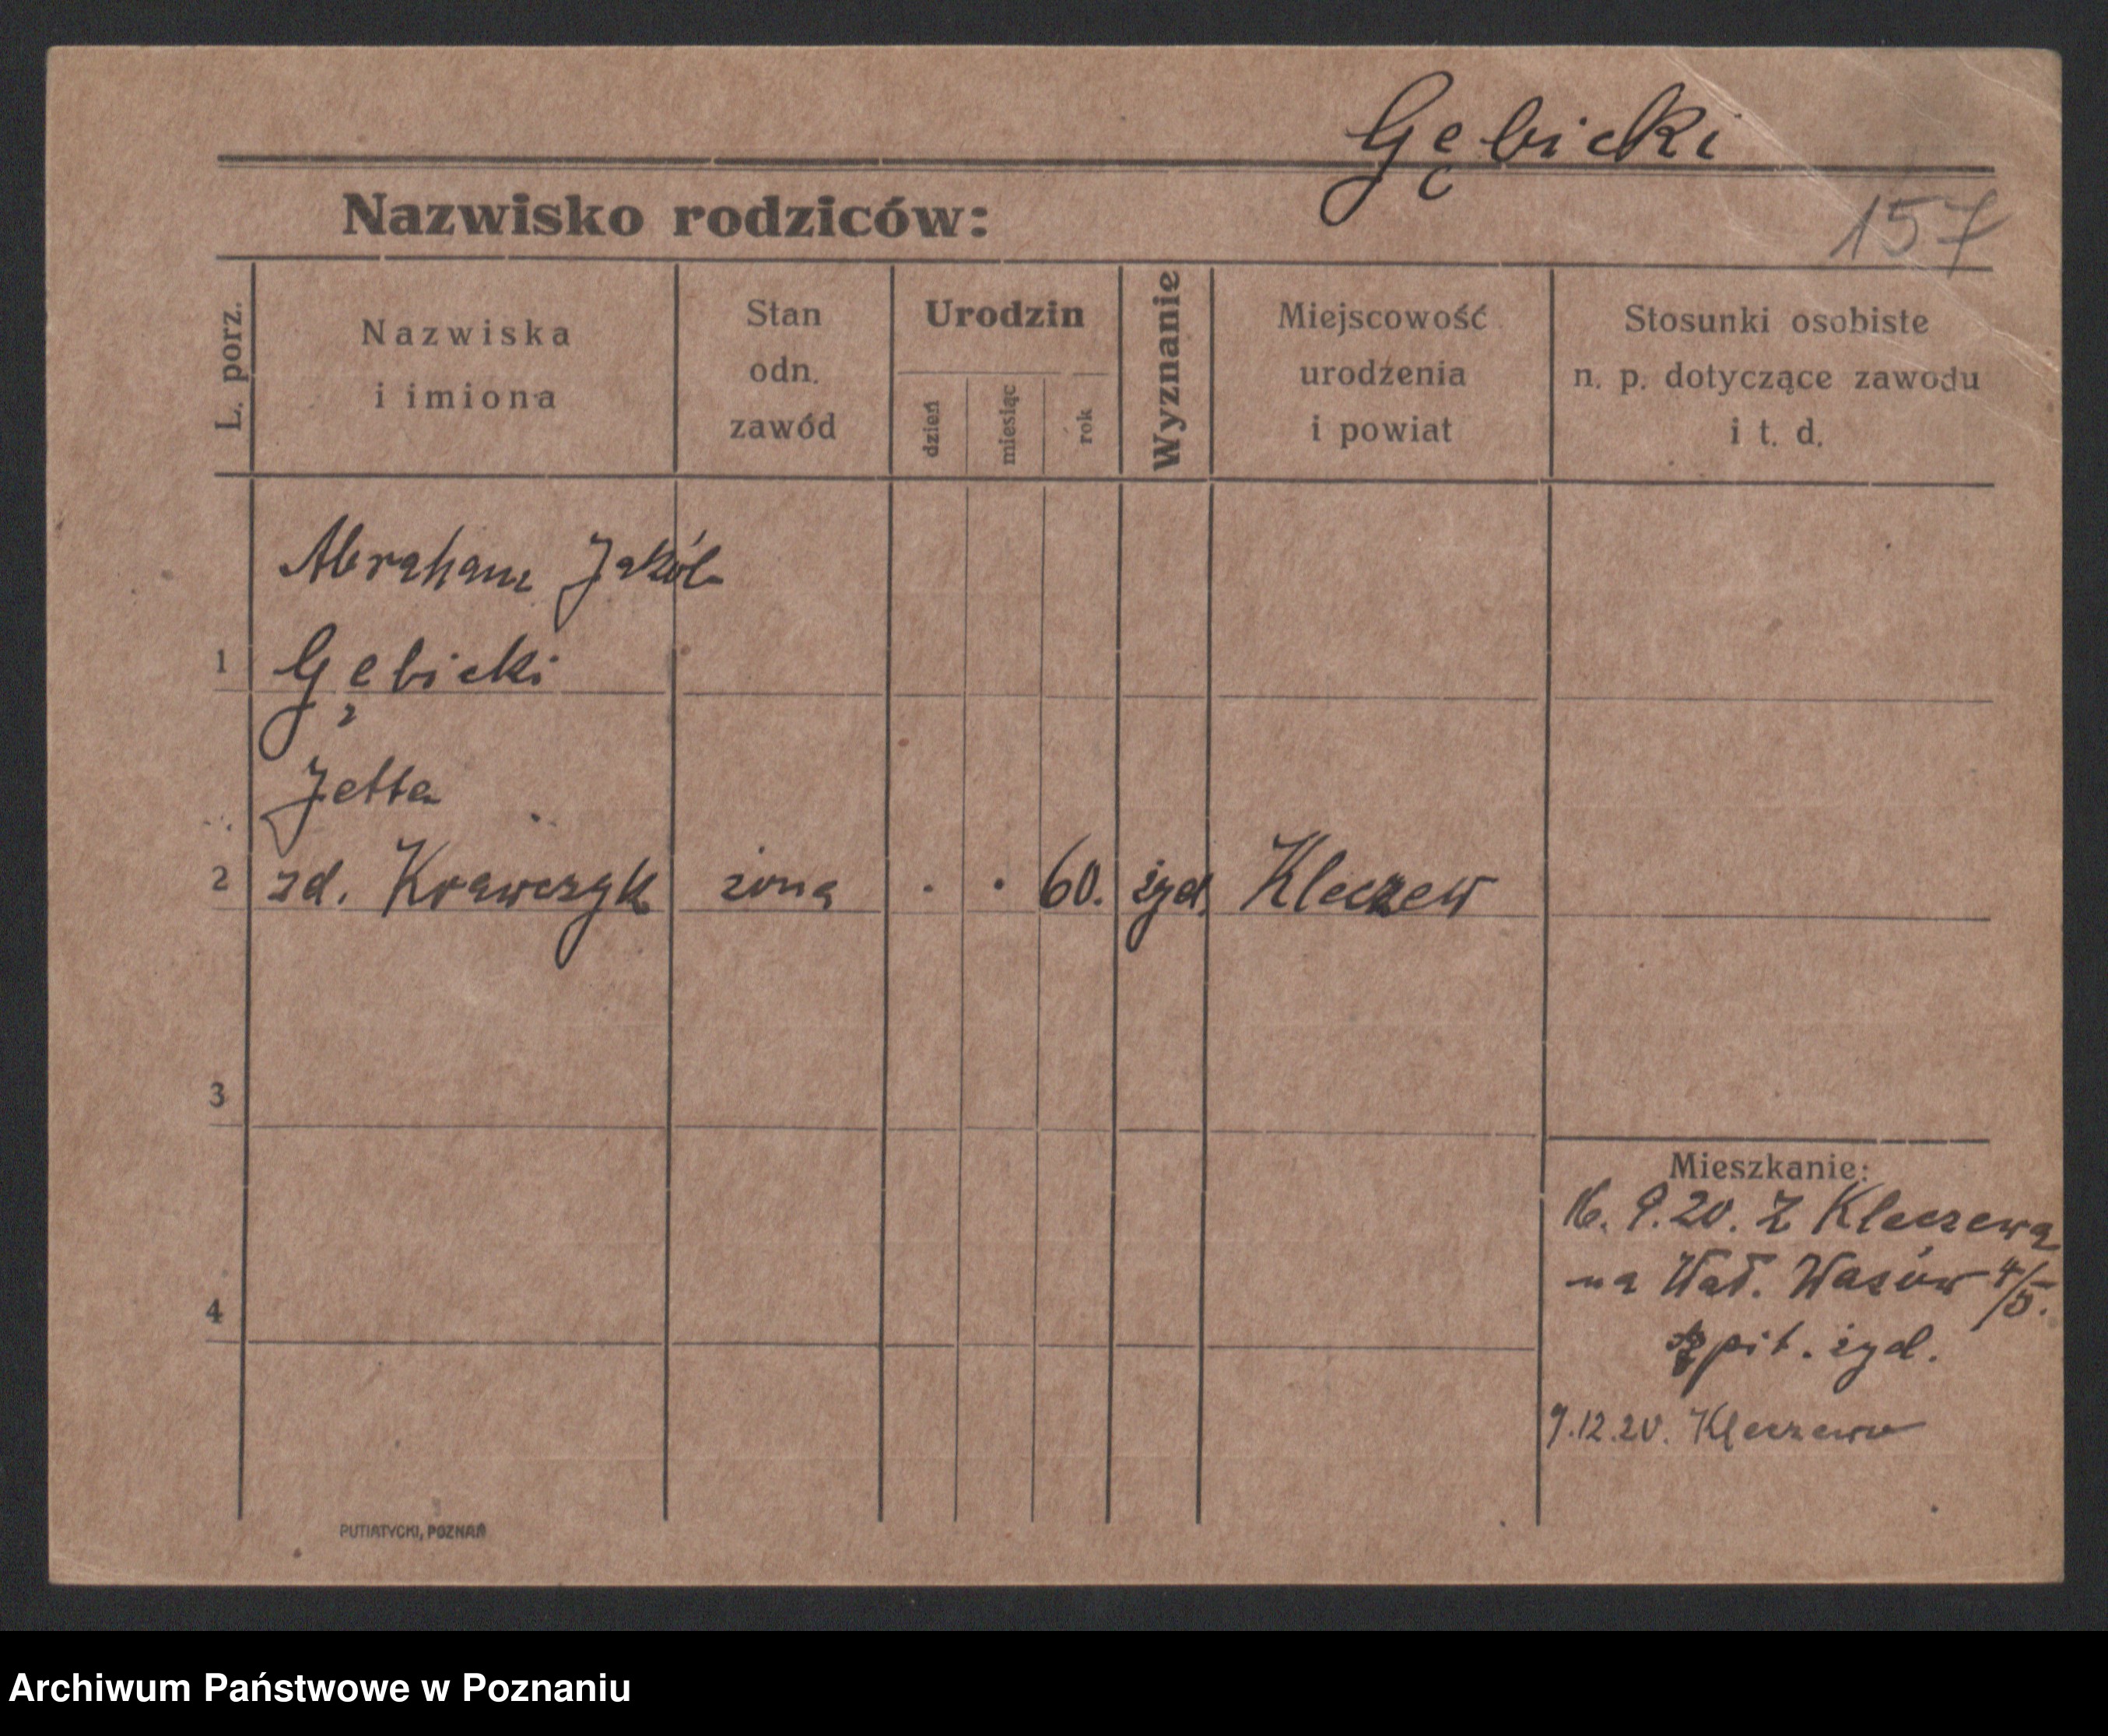 Gębicki
Nazwisko rodziców:
157
L. porz.
Nazwiska
i imiona
Stan
odn.
zawód
Urodzin
dzień
miesiąc
rok
Wyznanie
Miejscowość
urodzenia
i powiat
Stosunki osobiste
n. p. dotyczące zawodu
i t. d.
Abraham Jakób
1 Gębicki
Jetta
2 zd. Krawczyk żona . . 60. żyd. Kleczew
3
Mieszkanie:
16. 9. 20. Z Kleczewa
na Wał. Wazów 4/5.
4
szpit. żyd.
9.12.20. Kleczewa
PUTIATYCKI, POZNAŃ
Archiwum Państwowe w Poznaniu